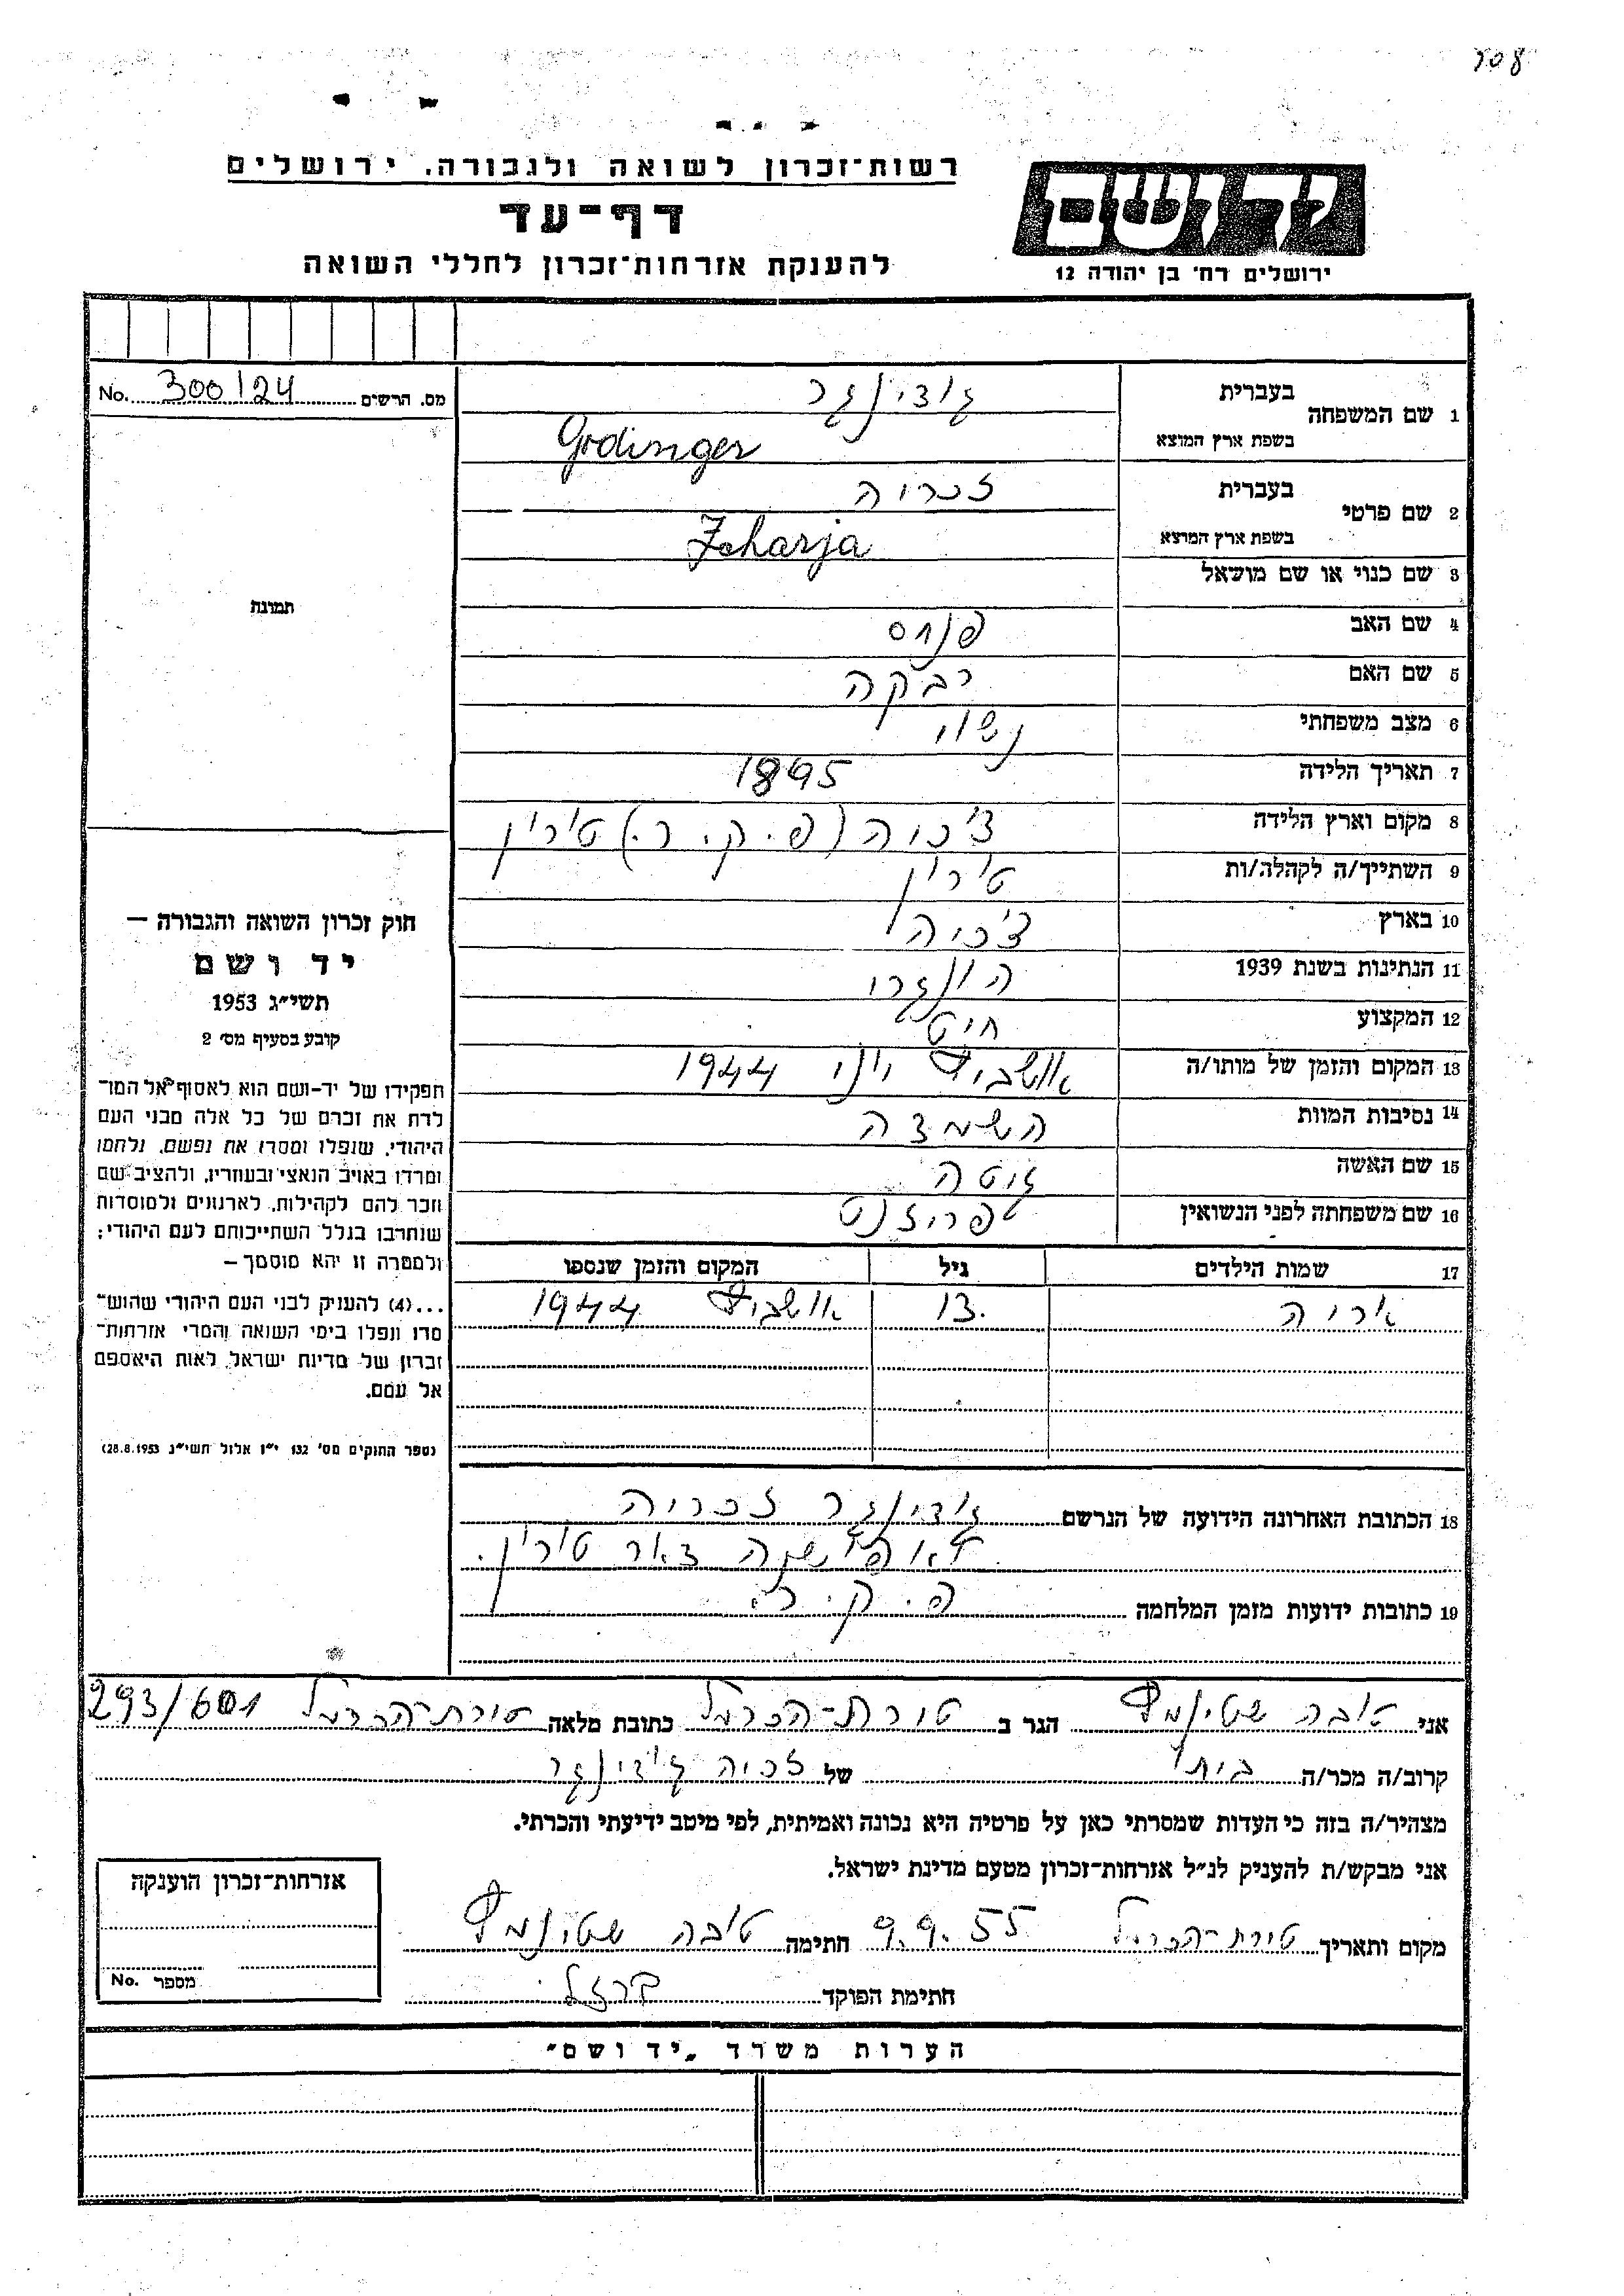 רשות־זכרון לשואה ולגבורה. ירושלים
דף־עד
להענקת אזרחות־זכרון לחללי השואה
יד ושם
ירושלים רח׳ בן יהודה 12
No. 300/24 מס. הרשים
1 שם המשפחה
בעברית גודינגר
בשפת ארץ המוצא Grdinger
2 שם פרטי
בעברית זכריה
בשפת ארץ המוצא Zcharja
3 שם כנוי או שם מושאל
4 שם האב פנחס
5 שם האם רבקה
6 מצב משפחתי נשוי
7 תאריך הלידה 1895
8 מקום וארץ הלידה צ׳כיה (פ.ק.ר.)
9 השתייך/ה לקהלה/ות
10 בארץ צ׳כיה
11 הנתינות בשנת 1939 הונגרי
12 המקצוע חיט
13 המקום והזמן של מותו/ה אושביץ יוני 1944
14 נסיבות המוות השמדה
15 שם האשה
16 שם משפחתה לפני הנשואין
17 שמות הילדים גיל המקום והזמן שנספו
אריה 13 אושביץ 1944
18 הכתובת האחרונה הידועה של הנרשם גודינגר זכריה
דאר
פ.ק.ר.
19 כתובות ידועות מזמן המלחמה
תמונת
חוק זכרון השואה והגבורה —
יד ושם
תשי״ג 1953
קובע בסעיף מס׳ 2
תפקידו של יד-ושם הוא לאסוף אל המו־
לדת את זכרם של כל אלה מבני העם
היהודי, שנפלו ומסרו את נפשם, נלחמו
ומרדו באויב הנאצי ובעוזריו, ולהציב שם
וזכר להם לקהילות, לארגונים ולמוסדות
שנחרבו בגלל השתייכותם לעם היהודי;
ולמטרה זו יהא מוסמך —
...(4) להעניק לבני העם היהודי שהוש־
מדו ונפלו בימי השואה והמרי אזרחות־
זכרון של מדינת ישראל לאות היאספם
אל עמם.
(ספר החוקים מס׳ 132 י״ז אלול תשי״ג 28.8.1953)
אני טובה הגר ב טירת-הכרמל כתובת מלאה טירת-הכרמל 293/601
קרוב/ה מכר/ה ביתו של זכריה גודינגר
מצהיר/ה בזה כי העדות שמסרתי כאן על פרטיה היא נכונה ואמיתית, לפי מיטב ידיעתי והכרתי.
אני מבקש/ת להעניק לנ״ל אזרחות־זכרון מטעם מדינת ישראל.
מקום ותאריך טירת-הכרמל 9.9.55 חתימה טובה
חתימת הפוקד ברזל
אזרחות־זכרון הוענקה
מספר No.
הערות משרד „יד ושם״